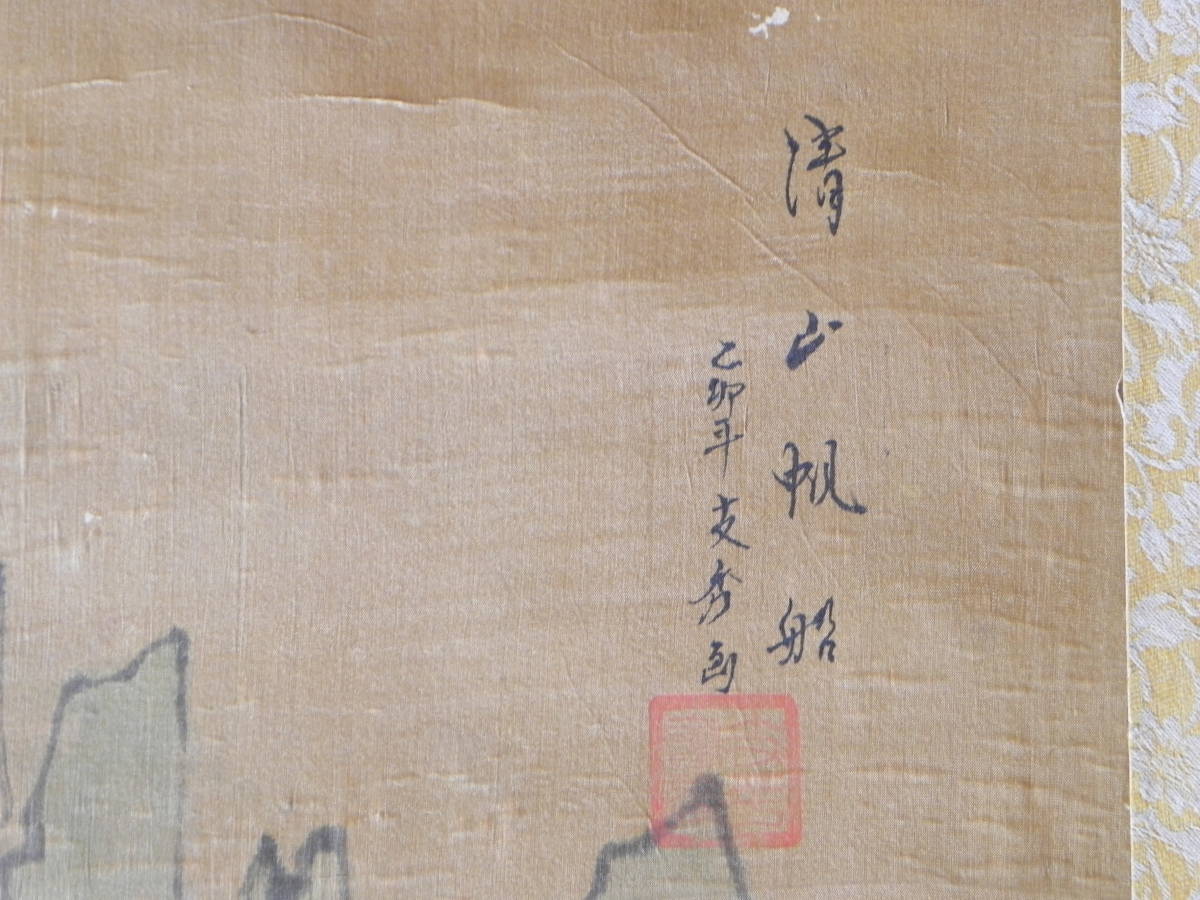 清山帆船
乙卯年 支秀画